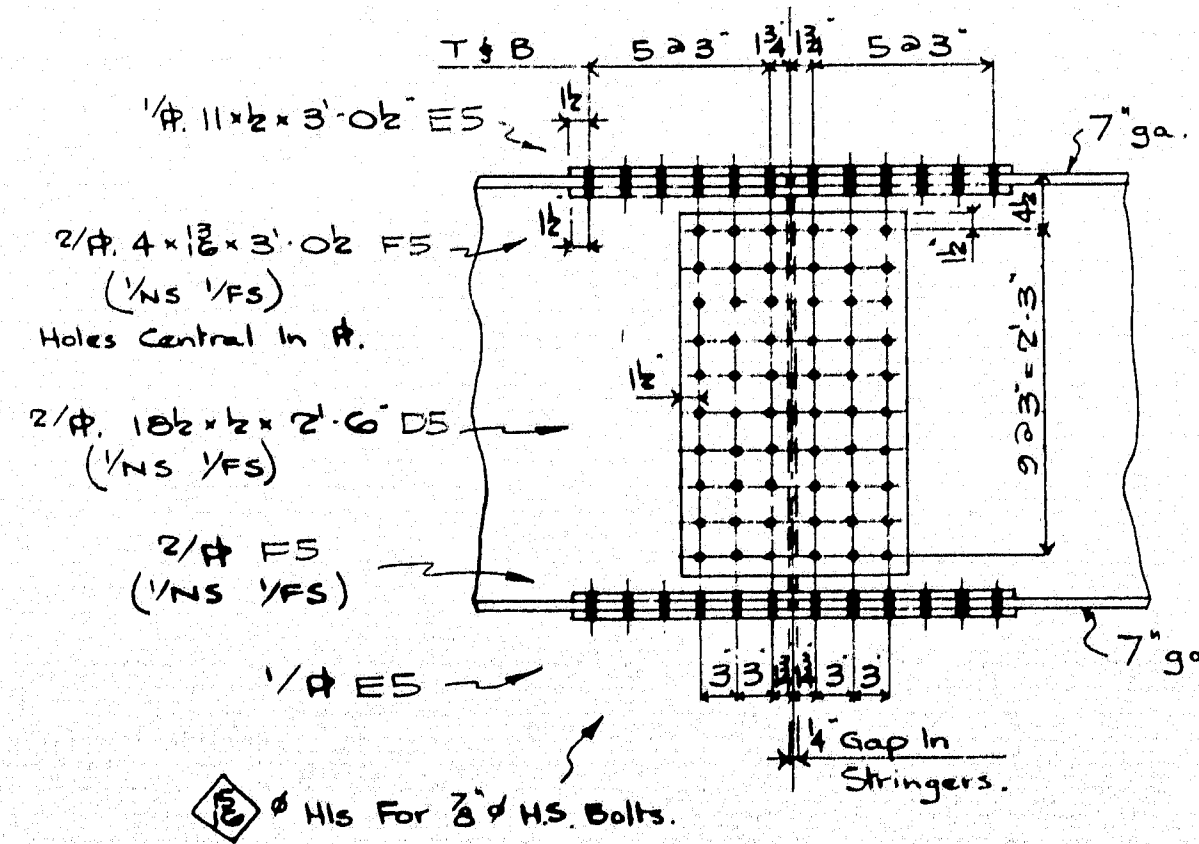 T & B 5 @ 3" 1¾" 1¾" 5 @ 3"
1½"
1/℄. 11 × ½ × 3'-0½" E5
7" ga.
4½
1½"
1½"
2/℄. 4 × 13/16 × 3'-0½ F5
(1/NS 1/FS)
Holes Central In ℄.
9 @ 3" = 2'-3"
1½"
2/℄. 18½ × ½ × 2'-6" D5
(1/NS 1/FS)
2/℄ F5
(1/NS 1/FS)
7" ga
1/℄ E5
3" 3" 1¾" 1¾" 3" 3"
¼" Gap In
Stringers.
15/16 ø Hls For ⅞" ø H.S. Bolts.